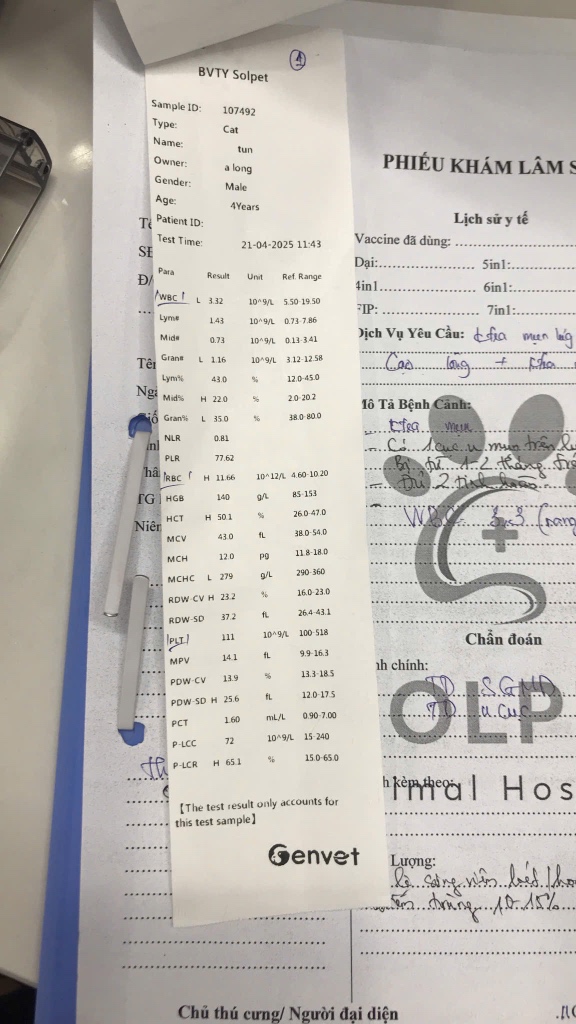 1
BVTY Solpet
Sample ID: 107492
Type: Cat
Name: tun
Owner: a long
Gender: Male
Age: 4Years
Patient ID:
Test Time: 21-04-2025 11:43
Para Result Unit Ref. Range
WBC L 3.32 10^9/L 5.50-19.50
Lym# 1.43 10^9/L 0.73-7.86
Mid# 0.73 10^9/L 0.13-3.41
Gran# L 1.16 10^9/L 3.12-12.58
Lym% 43.0 % 12.0-45.0
Mid% H 22.0 % 2.0-20.2
Gran% L 35.0 % 38.0-80.0
NLR 0.81
PLR 77.62
RBC H 11.66 10^12/L 4.60-10.20
HGB 140 g/L 85-153
HCT H 50.1 % 26.0-47.0
MCV 43.0 fL 38.0-54.0
MCH 12.0 pg 11.8-18.0
MCHC L 279 g/L 290-360
RDW-CV H 23.2 % 16.0-23.0
RDW-SD 37.2 fL 26.4-43.1
PLT 111 10^9/L 100-518
MPV 14.1 fL 9.9-16.3
PDW-CV 13.9 % 13.3-18.5
PDW-SD H 25.6 fL 12.0-17.5
PCT 1.60 mL/L 0.90-7.00
P-LCC 72 10^9/L 15-240
P-LCR H 65.1 % 15.0-65.0
【The test result only accounts for
this test sample】
Genvet
PHIẾU KHÁM LÂM S
Lịch sử y tế
Vaccine đã dùng:
Dại: 5in1:
4in1 6in1:
FIP: 7in1:
Dịch Vụ Yêu Cầu:
Cạo lông +
Mô Tả Bệnh Cảnh:
WBC 3.3
Chẩn đoán
nh chính:
TD
TD u cục
OLP
h kèm theo:
imal Hos
Lượng:
10-15%
Chủ thú cưng/ Người đại diện